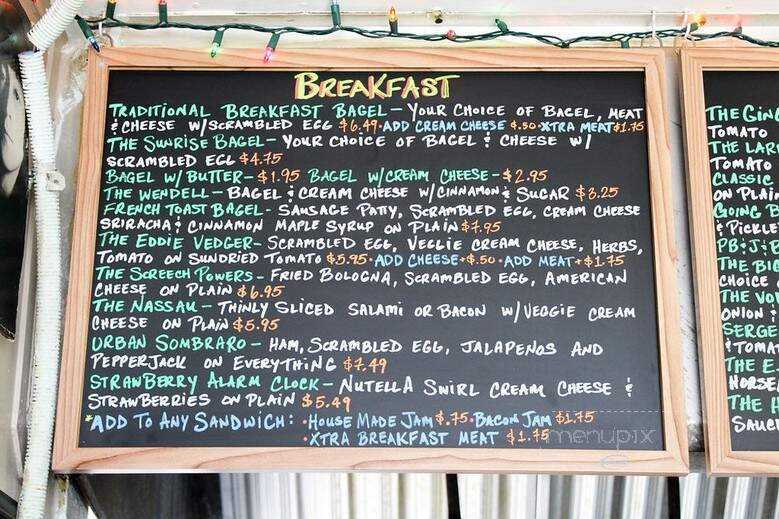 BREAKFAST
TRADITIONAL BREAKFAST BAGEL - YOUR CHOICE OF BAGEL, MEAT
& CHEESE W/SCRAMBLED EGG $6.49 • ADD CREAM CHEESE $.50 • XTRA MEAT $1.75
THE SUNRISE BAGEL - YOUR CHOICE OF BAGEL & CHEESE W/
SCRAMBLED EGG $4.75
BAGEL W/BUTTER - $1.95 BAGEL W/CREAM CHEESE - $2.95
THE WENDELL - BAGEL & CREAM CHEESE W/CINNAMON & SUGAR $3.25
FRENCH TOAST BAGEL - SAUSAGE PATTY, SCRAMBLED EGG, CREAM CHEESE
SRIRACHA & CINNAMON MAPLE SYRUP ON PLAIN $7.95
THE EDDIE VEDGER - SCRAMBLED EGG, VEGGIE CREAM CHEESE, HERBS,
TOMATO ON SUNDRIED TOMATO $5.95 • ADD CHEESE + $.50 • ADD MEAT + $1.75
THE SCREECH POWERS - FRIED BOLOGNA, SCRAMBLED EGG, AMERICAN
CHEESE ON PLAIN $6.95
THE NASSAU - THINLY SLICED SALAMI OR BACON W/VEGGIE CREAM
CHEESE ON PLAIN $5.95
URBAN SOMBRARO - HAM, SCRAMBLED EGG, JALAPENOS AND
PEPPERJACK ON EVERYTHING $7.49
STRAWBERRY ALARM CLOCK - NUTELLA SWIRL CREAM CHEESE &
STRAWBERRIES ON PLAIN $5.49
*ADD TO ANY SANDWICH: • HOUSE MADE JAM $.75 • BACON JAM $1.75
• XTRA BREAKFAST MEAT $1.75
menupix
THE
TOMATO
THE
TOMATO
CLASSIC
ON PLAIN
GOING
& PICKLE
PB & J
THE BIG
CHOICE
THE
ONION &
SERGE
& TOMA
THE E
HORSE
THE H
SAUC